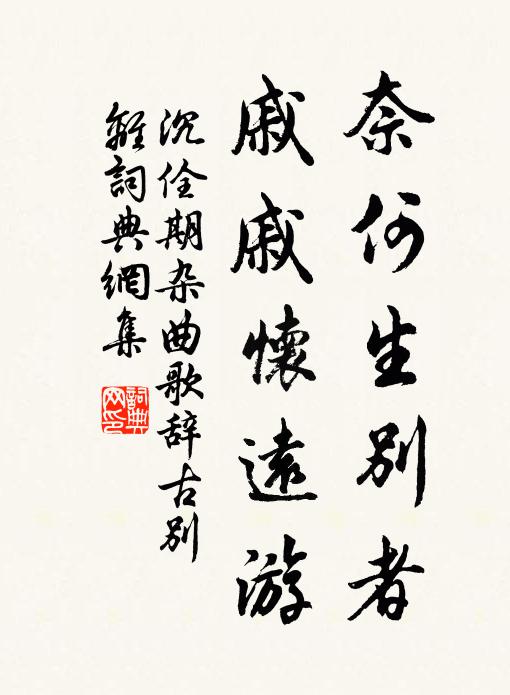 奈何生别者
戚戚懷遠游
沉佺期杂曲歌辞古别
離詞典網集
詞典
网印